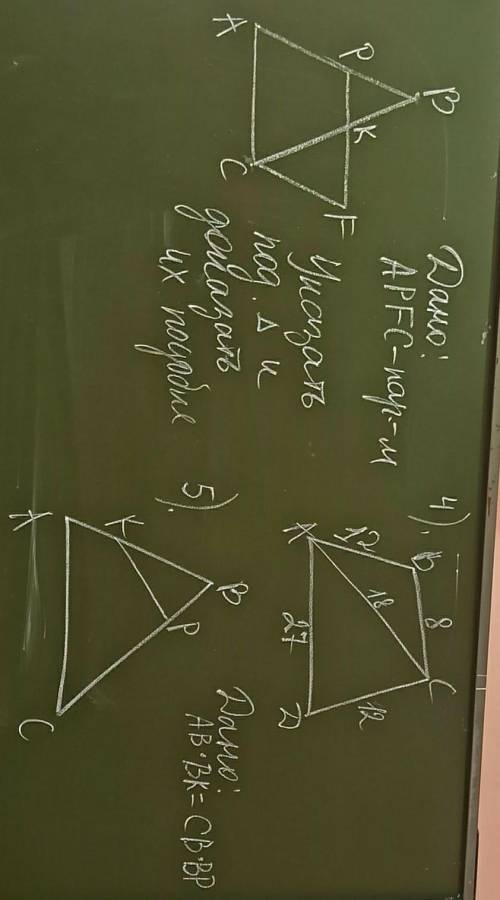 B
P
K
F
A
C
Дано:
APFC-пар-м
Указать
под. Δ и
доказать
их подобие
4).
B
8
C
12
18
12
A
27
D
5).
B
K
P
A
C
Дано:
AB·BK=CB·BP